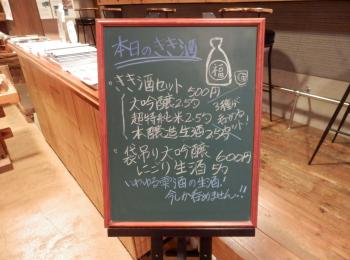 本日のきき酒
福
・きき酒セット 500円
大吟醸 2.5勺
超特純米 2.5勺
本醸造生酒 2.5勺
3種が
セット!
・袋吊り大吟醸 600円
にごり生酒 5勺
いわゆる雫酒の生酒!
今しか呑めません…!!